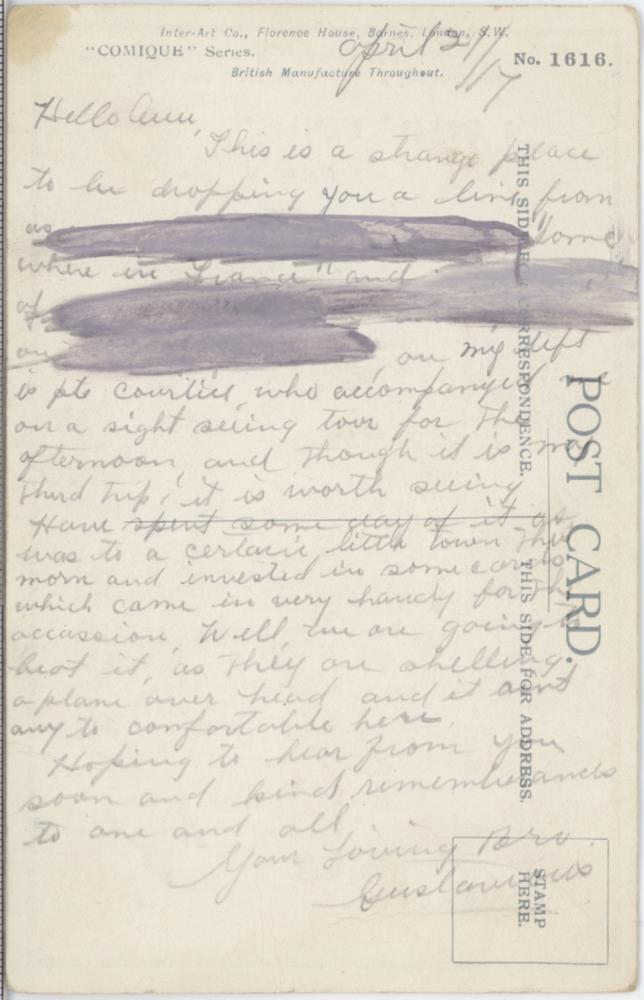 Inter-Art Co., Florence House, Barnes, London, S.W.
"COMIQUE" Series.
No. 1616.
British Manufacture Throughout.
April 2/17
Hello Ann
This is a strange place
to be dropping you a line from
as "Some
where in France" and
of
on my left
is pte who accompanyed me
on a sight seeing tour for the
afternoon, and though it is my
third trip, it is worth seeing
Have spent some day of it as
was to a certain little town this
morn and invested in some cards
which came in very handy for the
occassion. Well we are going to
beat it, as they are shelling
a plane over head and it aint
any to comfortable here.
Hoping to hear from you
soon and kind rememberances
to one and all
Your Loving Bro.
Gustavus
THIS SIDE FOR CORRESPONDENCE.
THIS SIDE FOR ADDRESS.
POST CARD.
STAMP
HERE.